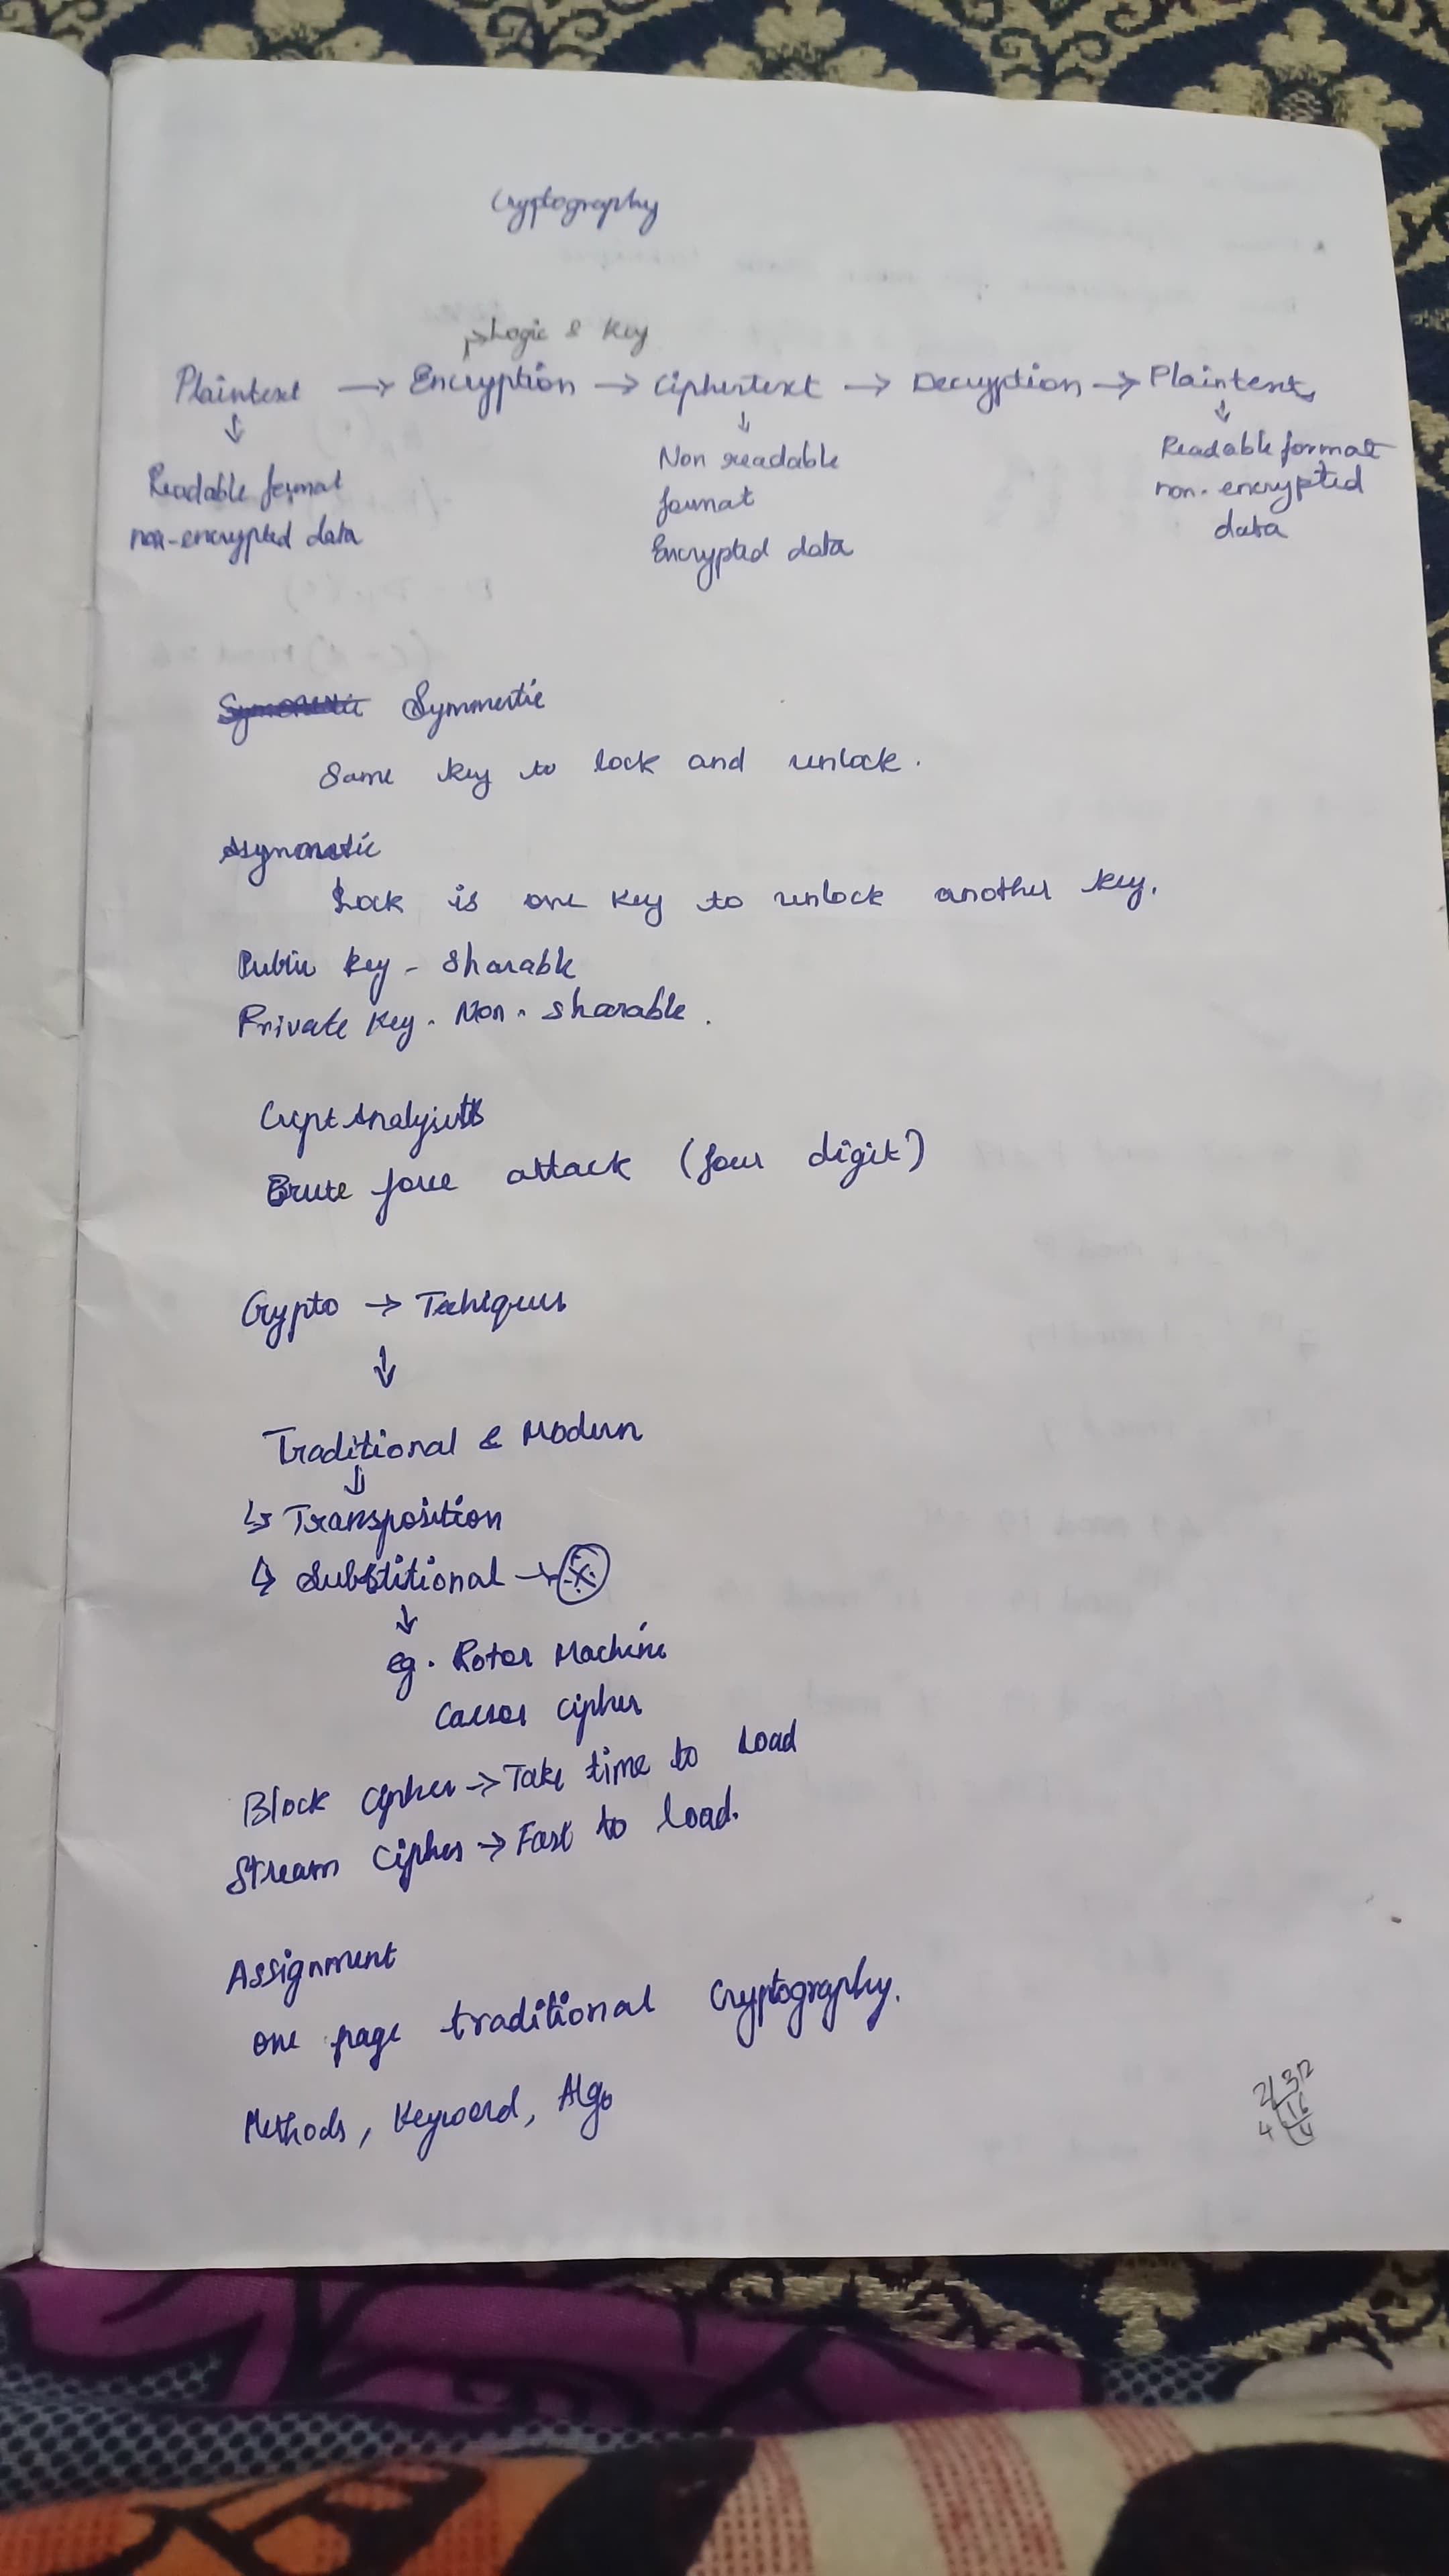 Cryptography
→ Logic & Key
Plaintext → Encryption → Ciphertext → Decryption → Plaintext
↓ ↓ ↓
Readable format Non readable Readable format
non-encrypted data format non-encrypted
Encrypted data data
Symmertic
Same key to lock and unlock.
Asymmetic
Lock is one key to unlock another key.
Public key - Sharable
Private key - Non - sharable.
Crypt Analysist
Brute force attack (four digit)
Crypto → Techiques
↓
Traditional & Modern
↓
↳ Transposition
↳ Substitional →
↓
eg. Rotor Machine
Caesar Cipher
Block Cipher → Take time to load
Stream Cipher → Fast to load.
Assignment
one page traditional Cryptography.
Methods, Keyword, Algo
2/312
4 16
4